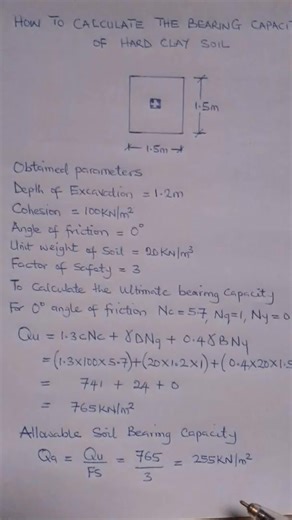 HOW TO CALCULATE THE BEARING CAPACIT
OF HARD CLAY SOIL
1.5m
1.5m
Obtained parameters
Depth of Excavation = 1.2m
Cohesion = 100KN/m²
Angle of friction = 0°
Unit weight of Soil = 20KN/m³
Factor of Safety = 3
To Calculate the Ultimate bearing Capacity
For 0° angle of friction Nc = 5.7, Nq = 1, Nγ = 0
Qu = 1.3CNc + γDNq + 0.4γBNγ
= (1.3x100x5.7)+(20x1.2x1)+(0.4x20x1.5
= 741 + 24 + 0
= 765KN/m²
Allowable Soil Bearing Capacity
Qa = Qu/FS = 765/3 = 255KN/m²